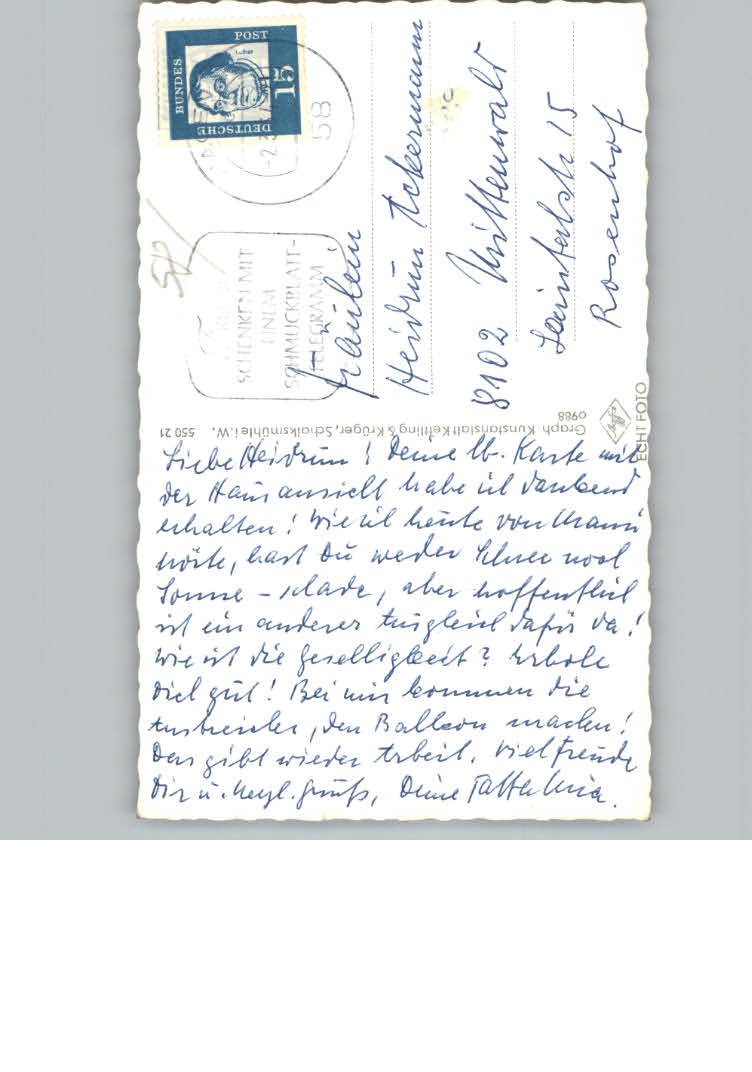 DEUTSCHE
BUNDES
POST
15
Luther
58
SCHENKEN MIT
EINEM
SCHMUCKBLATT-
TELEGRAMM
Fräulein
Heidrun Ackermann
8102 Mittenwald
Laintalstr. 15
Rosenhof
Graph. Kunstanstalt Kettling & Krüger, Schalksmühle i.W. 550 21
o988
ECHT FOTO
Liebe Heidrun! Deine lb. Karte mit
der Hausansicht habe ich dankend
erhalten! Wie ich heute von Mami
hörte, hast Du weder Schnee noch
Sonne – schade, aber hoffentlich
ist ein anderer Ausgleich dafür da!
Wie ist die Geselligkeit? Erhole
Dich gut! Bei mir kommen die
Anstreicher, den Balkon machen!
Das gibt wieder Arbeit. Viel Freude
Dir u. herzl. Gruß, Deine